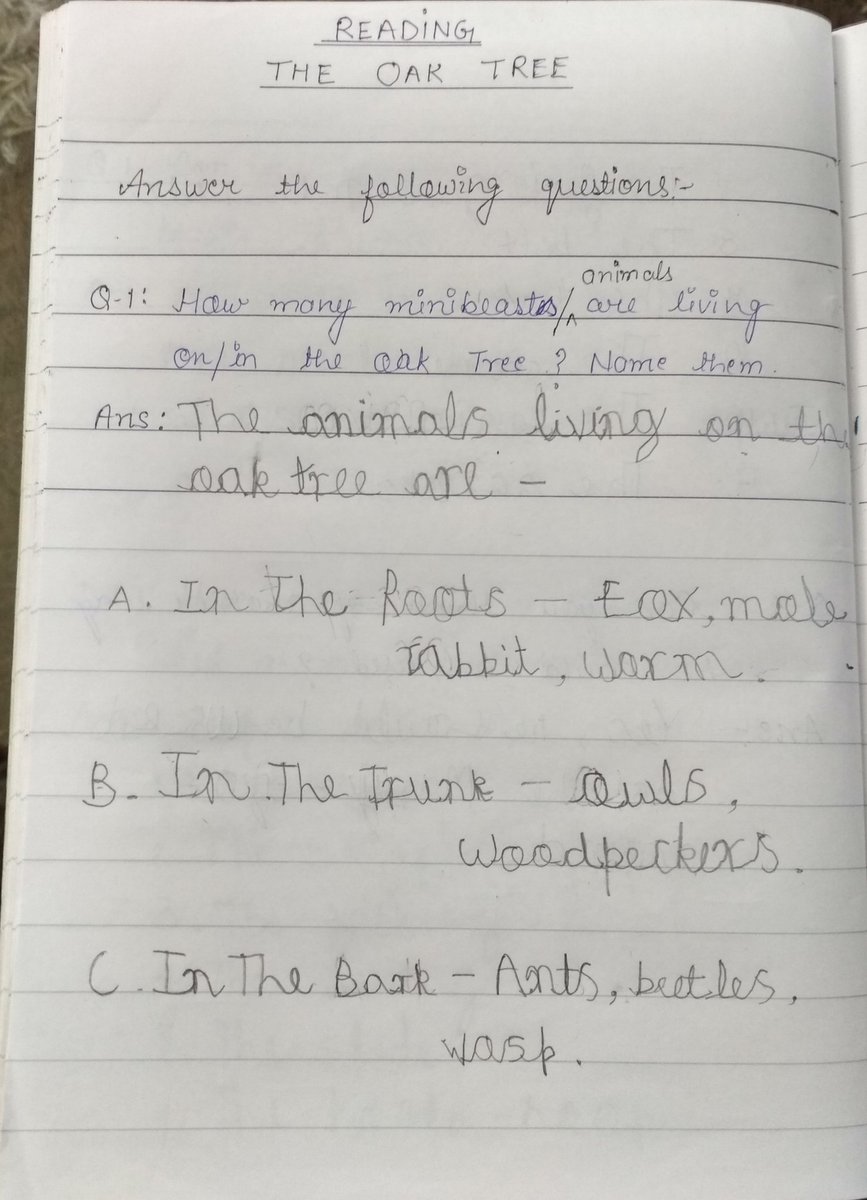 READING
THE OAK TREE
Answer the following questions:-
animals
Q-1: How many minibeastes/^ are living
on/in the oak Tree ? Name them.
Ans: The animals living on the
oak tree are -
A. In The Roots - Fox, mole
rabbit, worm.
B. In The Trunk - Owls,
woodpeckers.
C. In The Bark - Ants, beetles,
wasp.